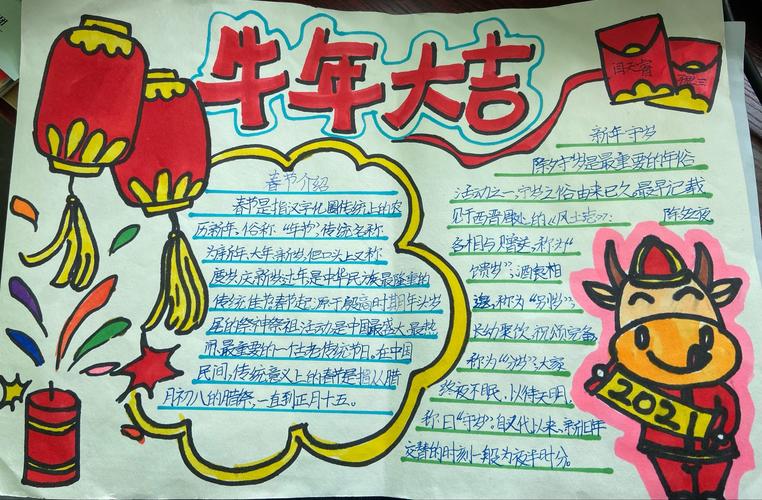 牛年大吉
春节介绍
春节是指汉字化圈传统上的农
历新年,俗称“年节”,传统名称
为新年、大年、新岁,但口头上又称
度岁、庆新岁、过年,是中华民族最隆重的
传统佳节春节起源于殷商时期年头岁
尾的祭神祭祖活动是中国最盛大、最热
闹、最重要的一个古老传统节日。在中国
民间,传统意义上的春节是指从腊
月初八的腊祭,一直到正月十五。
新年守岁
除夕守岁是最重要的年俗
活动之一,守岁之俗由来已久。最早记载
见于西晋周处的《风土志》:除夕之夜
各相与赠送,称为“
馈岁”;酒食相
邀,称为“别岁”;
长幼聚饮,祝颂完备,
称为“分岁”;大家
终夜不眠,以待天明,
称曰“守岁”。自汉代以来,新旧年
交替的时刻一般为夜半时分。
2021